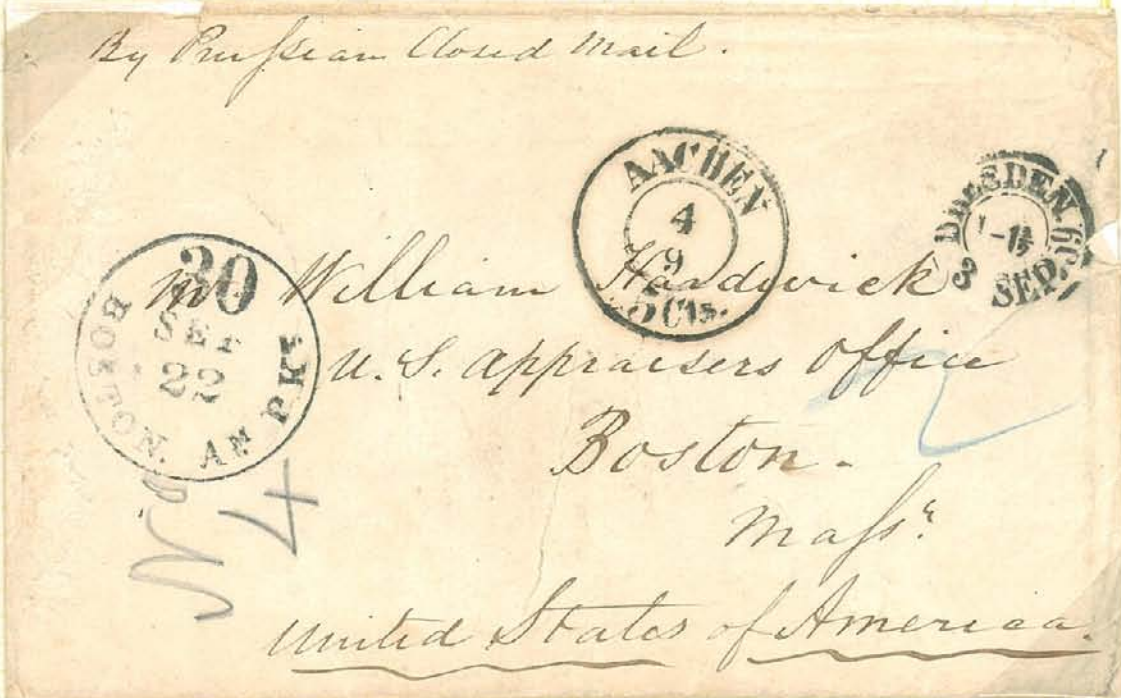 By Prussian Closed Mail.
AACHEN
4
9
5 Cts.
DRESDEN
3 SEP. 60
30
SEP
22
BOSTON. AM PKT
Mr. William Hardwick
U. S. Appraisers Office
Boston.
Mass.
United States of America.
4